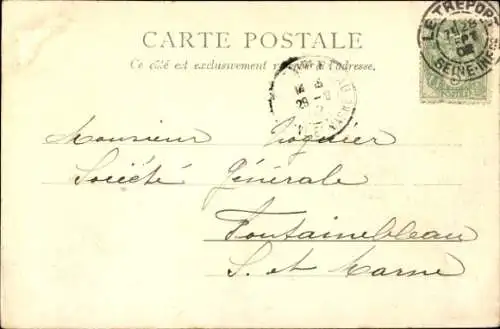 CARTE POSTALE
Ce côté est exclusivement réservé à l'adresse.
LE TREPORT
SEINE-INFRE
Monsieur Noguier
Société Générale
Fontainebleau
S. et Marne